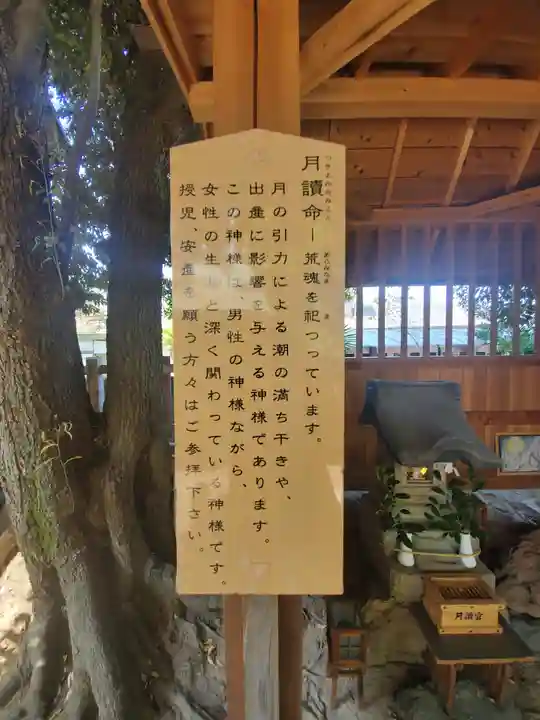 月讀命―荒魂を祀つっています。
月の引力による潮の満ち干きや、
出産に影響を与える神様であります。
この神様は、男性の神様ながら、
女性の生と深く関わっている神様です。
授児、安産を願う方々はご参拝下さい。
月讀宮